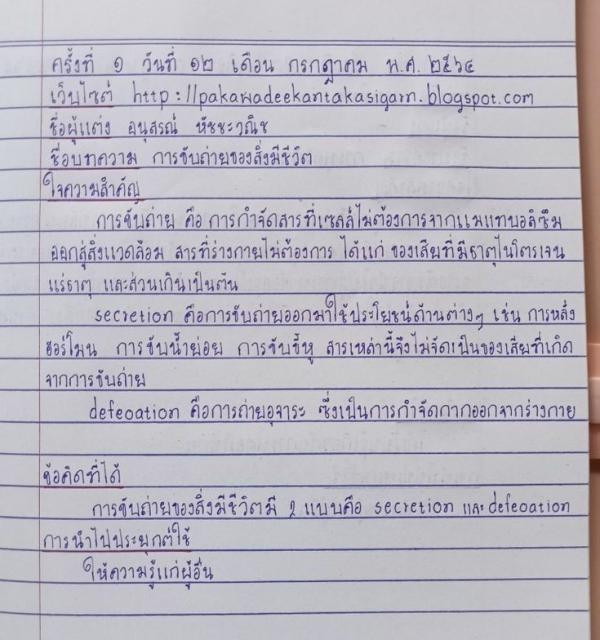 ครั้งที่ ๑ วันที่ ๑๒ เดือน กรกฎาคม พ.ศ. ๒๕๖๔
เว็บไซต์ http://pakawadeekantakasigarn.blogspot.com
ชื่อผู้แต่ง อนุสรณ์ หัชชะวณิช
ชื่อบทความ การขับถ่ายของสิ่งมีชีวิต
ใจความสำคัญ
การขับถ่าย คือ การกำจัดสารที่เซลล์ไม่ต้องการจากเเมเเทบอลิซึม
ออกสู่สิ่งเเวดล้อม สารที่ร่างกายไม่ต้องการ ได้เเก่ ของเสียที่มีธาตุไนโตรเจน
เเร่ธาตุ เเละส่วนเกินเป็นต้น
secretion คือการขับถ่ายออกมาใช้ประโยชน์ด้านต่างๆ เช่น การหลั่ง
ฮอร์โมน การขับน้ำย่อย การขับขี้หู สารเหล่านี้จึงไม่จัดเป็นของเสียที่เกิด
จากการขับถ่าย
defeoation คือการถ่ายอุจาระ ซึ่งเป็นการกำจัดกากออกจากร่างกาย
ข้อคิดที่ได้
การขับถ่ายของสิ่งมีชีวิตมี 2 เเบบคือ secretion เเละ defeoation
การนำไปประยุกต์ใช้
ให้ความรู้เเก่ผู้อื่น